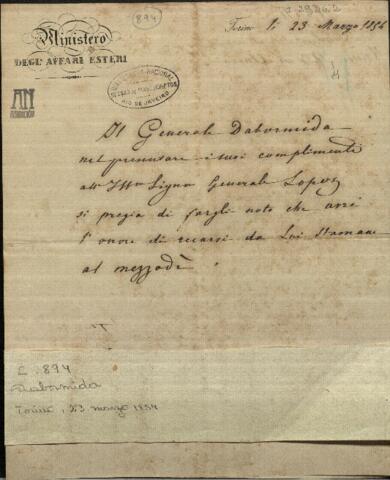 894
I-29262
Ministero
DEGL'AFFARI ESTERI
Torino li 23 Marzo 1854
4
AN
RIO DE JANEIRO
Il Generale Dabormida
nel presentare i suoi complimenti
all' Illmo Signor Generale Lopez
si pregia di fargli noto che avrà
l'onore di recarsi da Lui stamane
al mezzodì.
L. 894
Dabormida
Torino, 23 marzo 1854